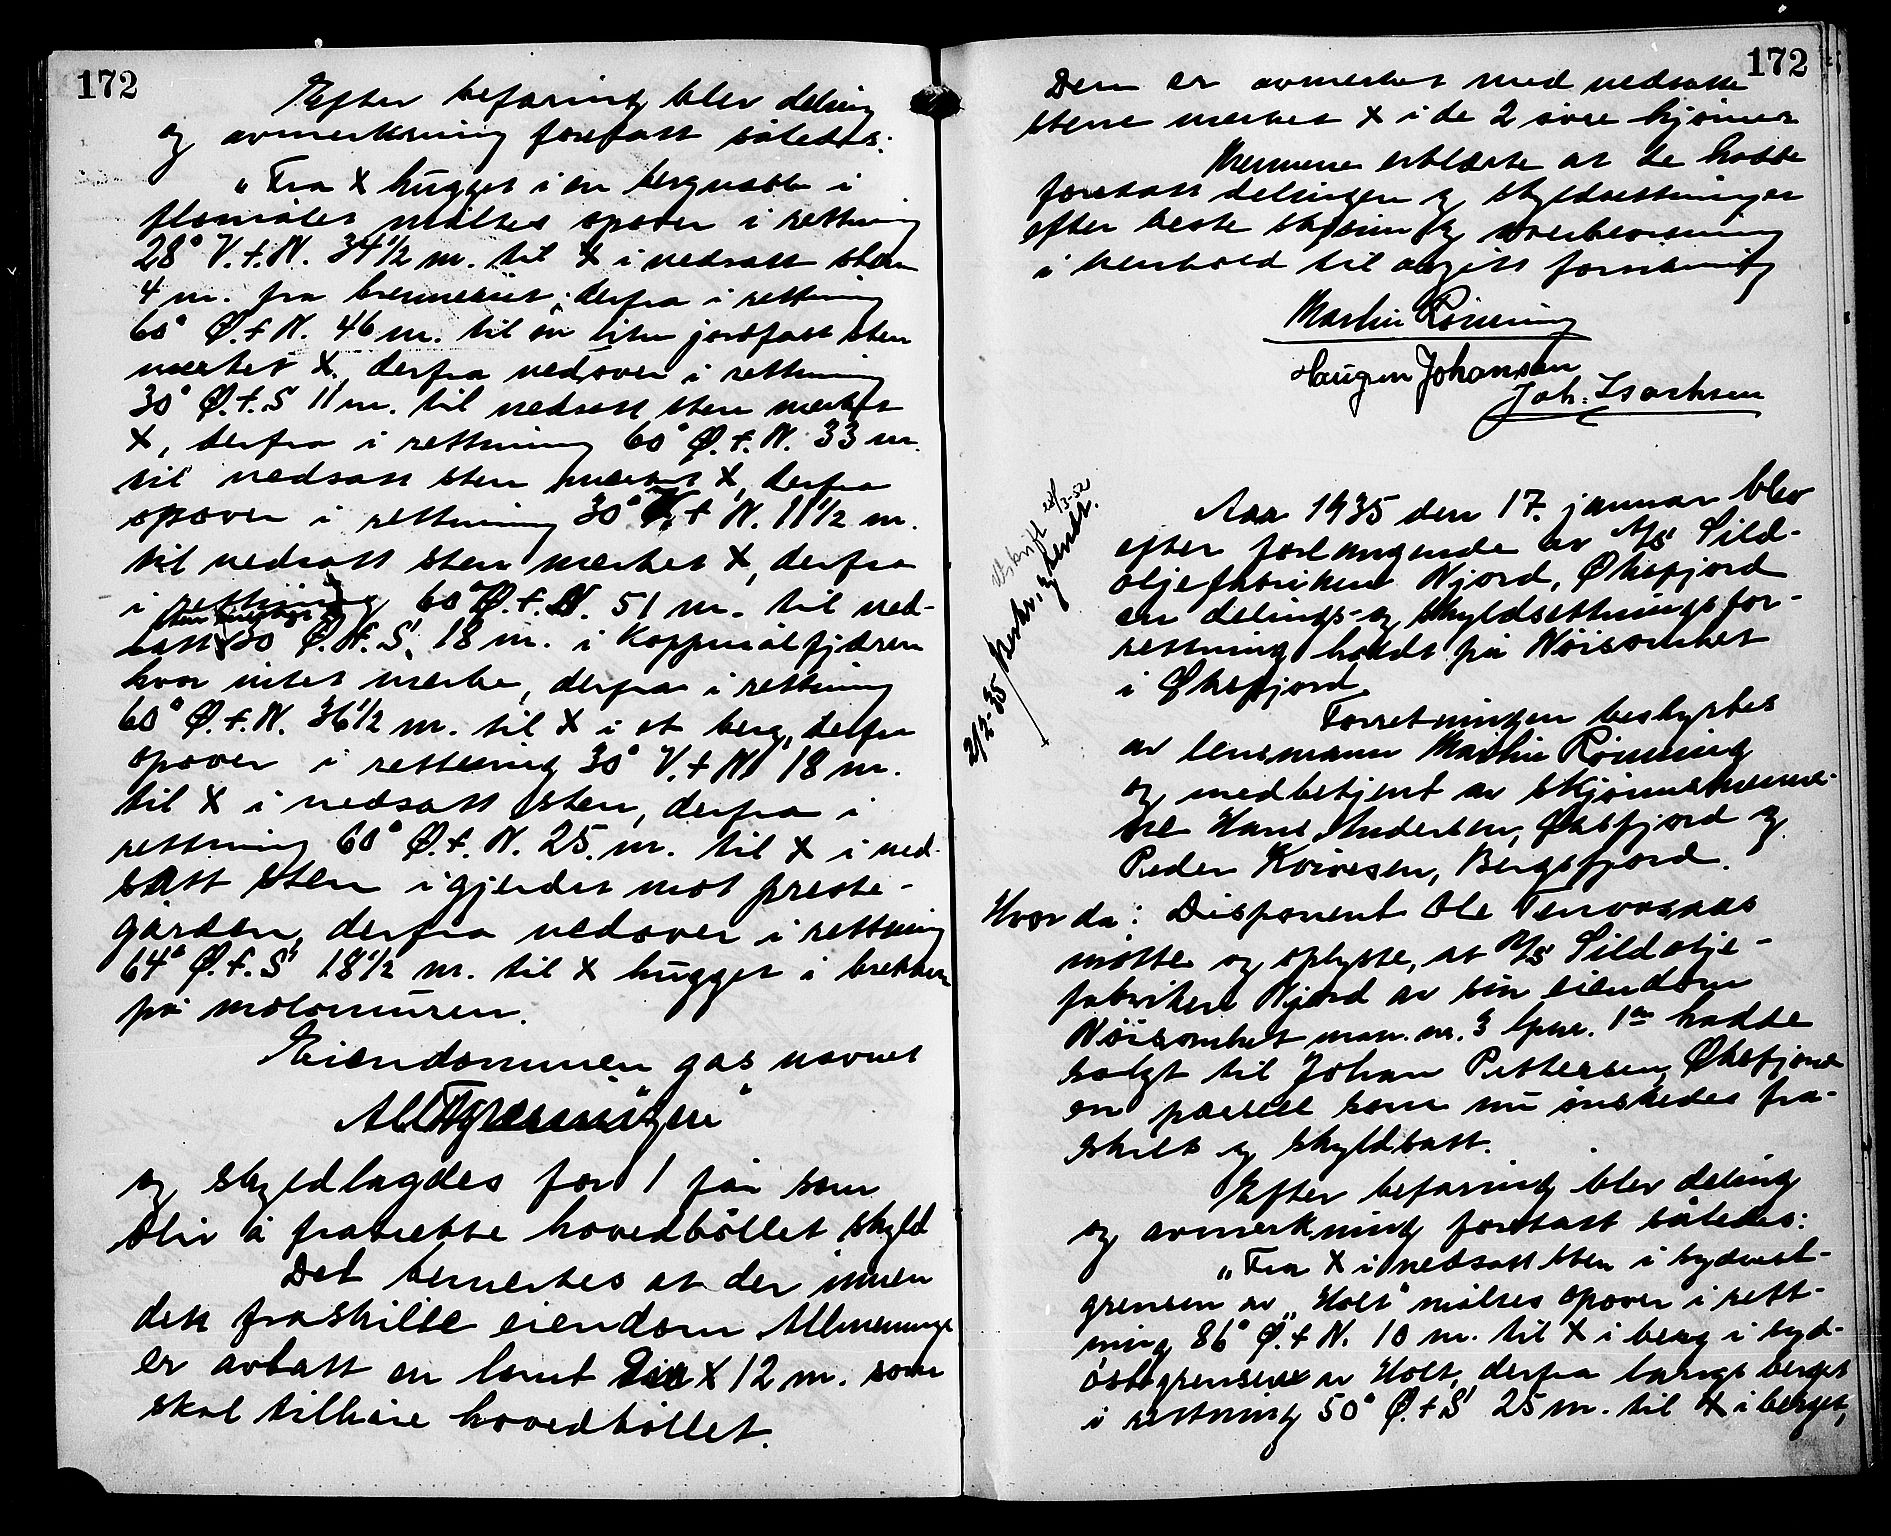 172
Efter befaring blev deling
og avmerkning foretatt således:
"Fra X hugget i en bergnabbe i
flomålet måltes opover i rettning
28° V.f.N. 34 1/2 m. til X i nedsatt sten
4 m. fra derfra i rettning
60° Ø.f.N. 46 m. til en liten jordfast sten
merket X, derfra nedover i rettning
30° Ø.f.S 11 m. til nedsatt sten merket
X, derfra i rettning 60° Ø.f.N. 33 m.
til nedsatt sten merket X, derfra
opover i rettning 30° V.f.N. 11 1/2 m.
til nedsatt sten merket X, derfra
i rettning 60° Ø.f.N. 51 m. til ned-
satt 30 Ø.f.S. 18 m. i
hvor intet merke, derfra i rettning
60° Ø.f.N. 36 1/2 m. til X i et berg, derfra
opover i rettning 30° V.f.N. 18 m.
til X i nedsatt sten, derfra i
rettning 60° Ø.f.N. 25. m. til X i ned-
satt sten i gjerdet mot preste-
gården, derfra nedover i rettning
64° Ø.f.S 18 1/2 m. til X hugget i
på molomuren.
Eiendommen gas navnet

og skyldlagdes for 1 som
blir å fratrekke hovedbøllet skyld
Det bemerkes at der innen
den fraskilte eiendom
er avsatt en tomt X 12 m. som
skal tilhøre hovedbøllet.
172
Den er avmerket med nedsatte
stene merket X i de 2 øvre hjørner
Mennene erklærte at de hadde
foretatt delingen og skyldsettningen
efter beste skjønn og overbevisning
i henhold til avgitt forsikring
Martin Rønning
Haugen Johansen
Joh. Isaksen
2/2-35
Aar 1935 den 17. januar blev
efter forlangende av A/S Sild-
oljefabriken Njord, Øksfjord
en delings- og skyldsettningsfor-
rettning holdt på Nøisomhet
i Øksfjord.
Forretningen bestyrtes
av lensmann Martin Rønning
og medbetjent av skjønnsmenne-
ne Hans Andersen, Øksfjord og
Peder Koivesen, Bergsfjord.
Hvor da: Disponent Ole
møtte og oplyste, at A/S Sildolje-
fabriken Njord av sin eiendom
Nøisomhet matr. nr. 3 lpnr. 1 hadde
solgt til Johan Pettersen, Øksfjord
en parsell som nu ønskedes fra-
skilt og skyldsatt.
Efter befaring blev deling
og avmerkning foretatt således:
"Fra X i nedsatt sten i sydvest-
grensen av "Holt" måltes opover i rett-
ning 86° Ø.f.N. 10 m. til X i berg i syd-
østgrensen av Holt, derfra langs berget
i rettning 50° Ø.f.S 25 m. til X i berget,